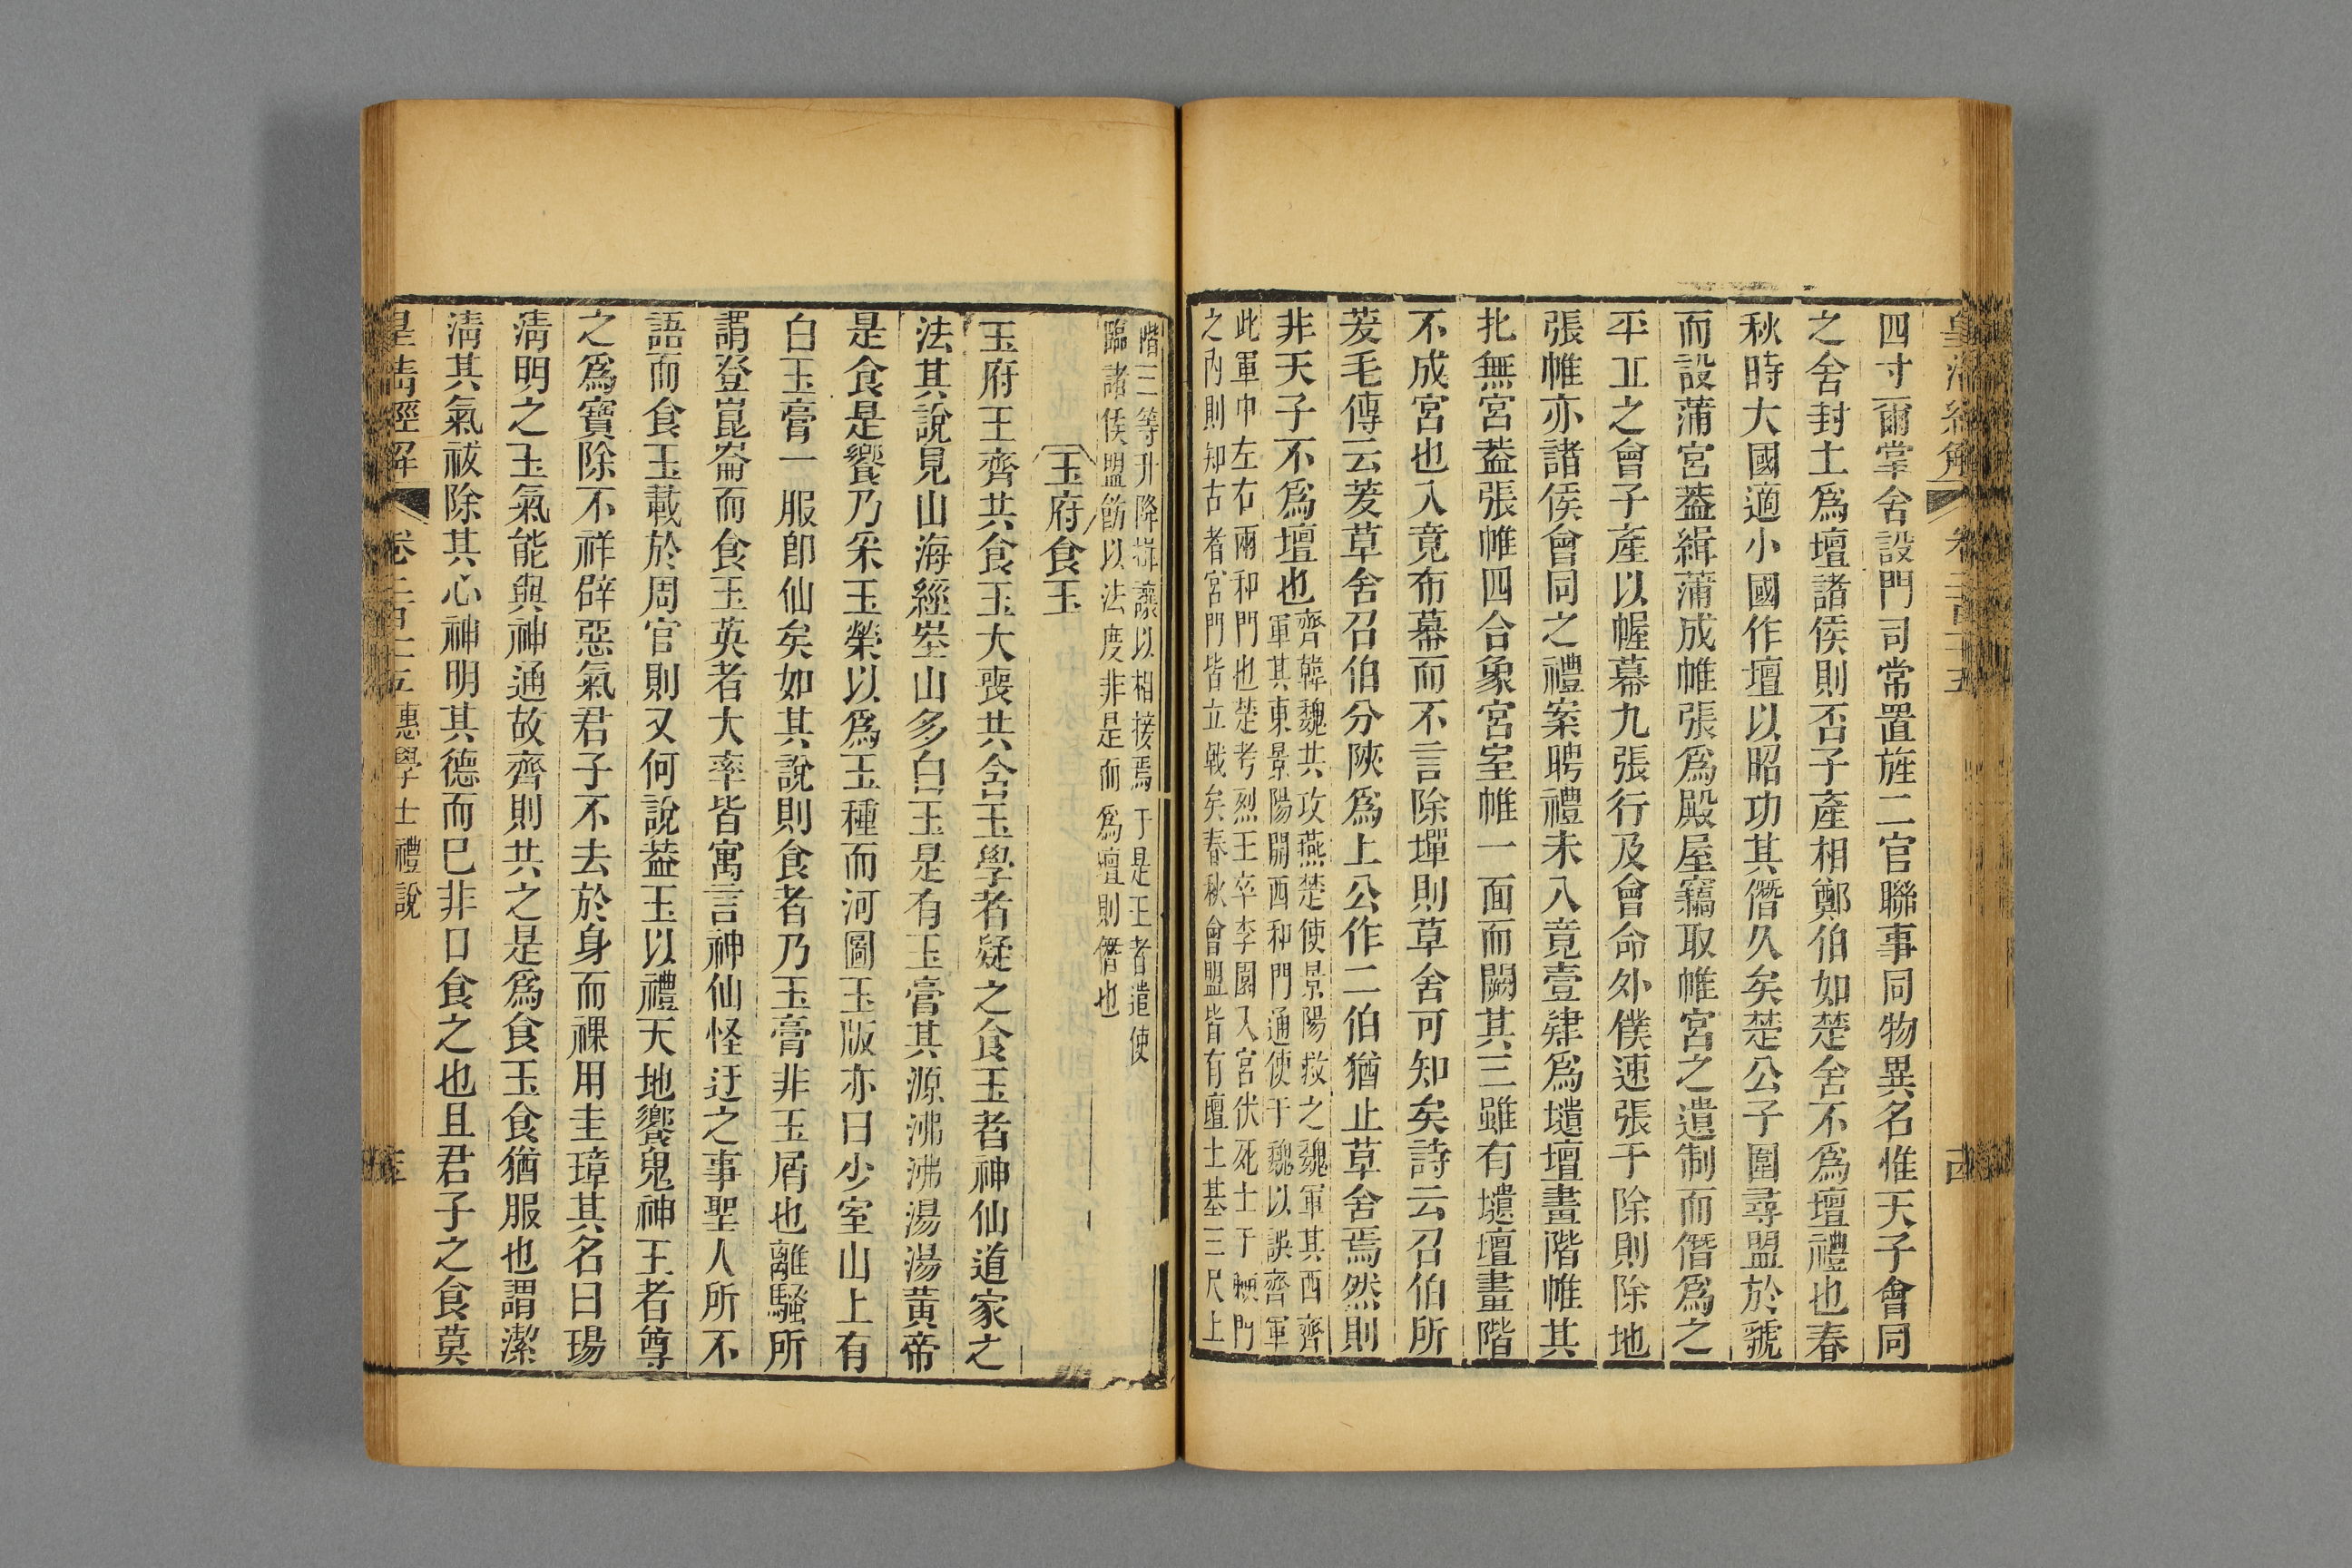 皇清經解 卷二百十五 古
四寸爾掌舍設門司常置旌二官聯事同物異名惟天子會同
之舍封土爲壇諸侯則否子產相鄭伯如楚舍不爲壇禮也春
秋時大國適小國作壇以昭功其僭久矣楚公子圍尋盟於虢
而設蒲宮葢緝蒲成帷張爲殿屋竊取帷宮之遺制而僭爲之
平丘之會子產以幄幕九張行及會命外僕速張于除則除地
張帷亦諸侯會同之禮案聘禮未入竟壹肄爲壝壇畫階帷其
北無宮葢張帷四合象宮室帷一面而闕其三雖有壝壇畫階
不成宮也入竟布幕而不言除墠則草舍可知矣詩云召伯所
茇毛傳云茇草舍召伯分陝爲上公作二伯猶止草舍焉然則
非天子不爲壇也
齊韓魏共攻燕楚使景陽救之魏軍其西齊
軍其東景陽開西和門通使于魏以誤齊軍
此軍中左右兩和門也楚考烈王卒李園入宮伏死士于棘門
之內則知古者宮門皆立戟矣春秋會盟皆有壇土基三尺上
階三等升降揖讓以相接焉于是王者遣使
臨諸侯盟飭以法度非是而爲壇則僭也
玉府食玉
玉府王齊共食玉大喪共含玉學者疑之食玉者神仙道家之
法其說見山海經峚山多白玉是有玉膏其源沸沸湯湯黃帝
是食是饗乃采玉榮以爲玉種而河圖玉版亦曰少室山上有
白玉膏一服卽仙矣如其說則食者乃玉膏非玉屑也離騷所
謂登崑崙而食玉英者大率皆寓言神仙怪迂之事聖人所不
語而食玉載於周官則又何說葢玉以禮天地饗鬼神王者尊
之爲寶除不祥辟惡氣君子不去於身而祼用圭璋其名曰瑒
淸明之玉氣能與神通故齊則共之是爲食玉食猶服也謂潔
淸其氣祓除其心神明其德而已非口食之也且君子之食莫
皇清經解 卷二百十五 惠學士禮說